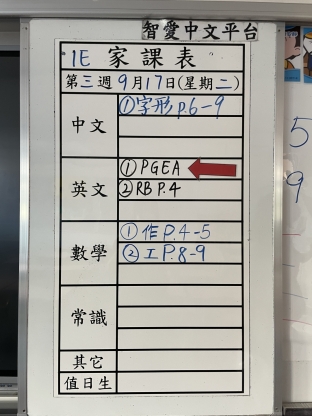 智愛中文平台
1E 家課表
第三週9月17日(星期二)
中文
①字形 P.6-9
英文
①PGEA
②RB P.4
數學
①作 P.4-5
②工 P.8-9
常識
其它
值日生
5
9